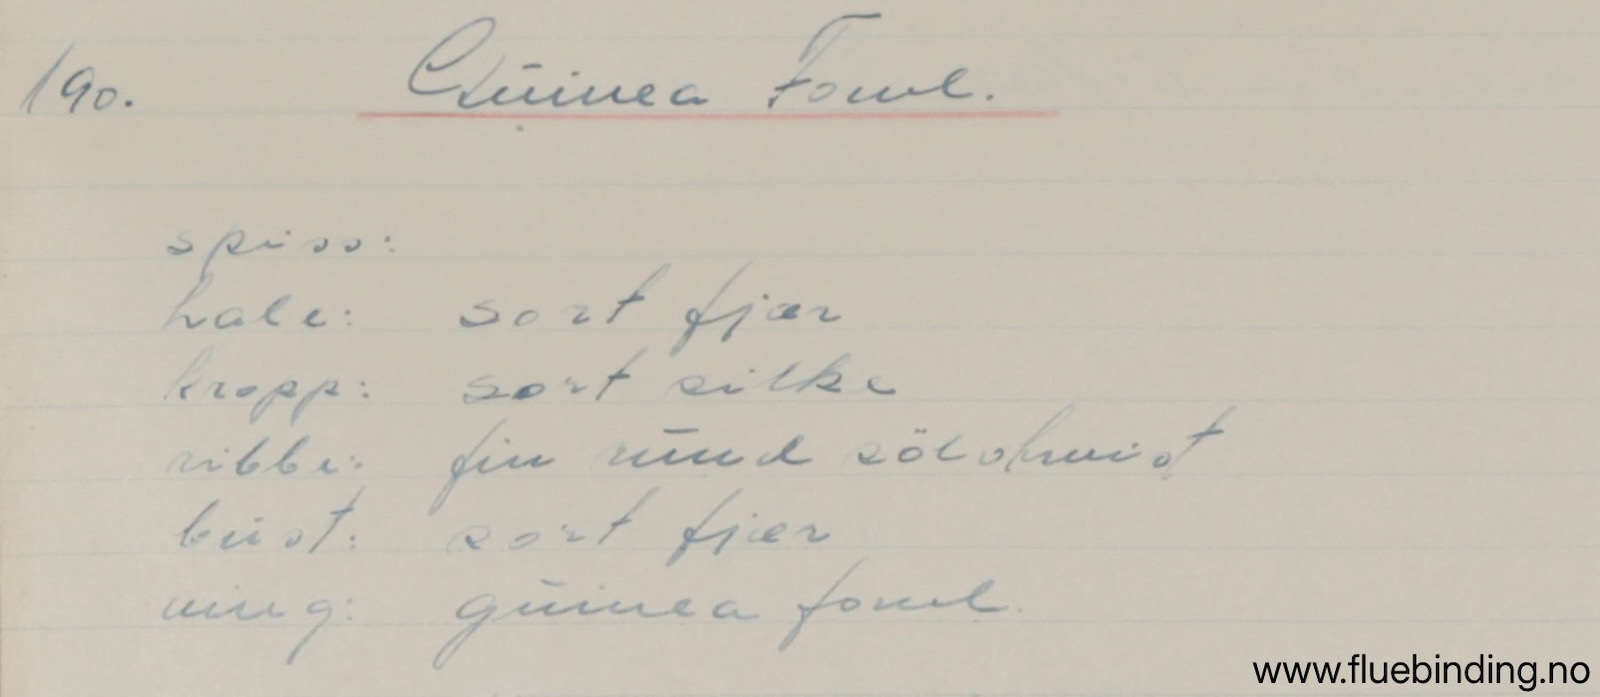 190. Guinea Fowl.
spiss:
hale: sort fjær
kropp: sort silke
ribbe: fin rund söl
bust: sort fjær
ving: guinea fowl.
www.fluebinding.no